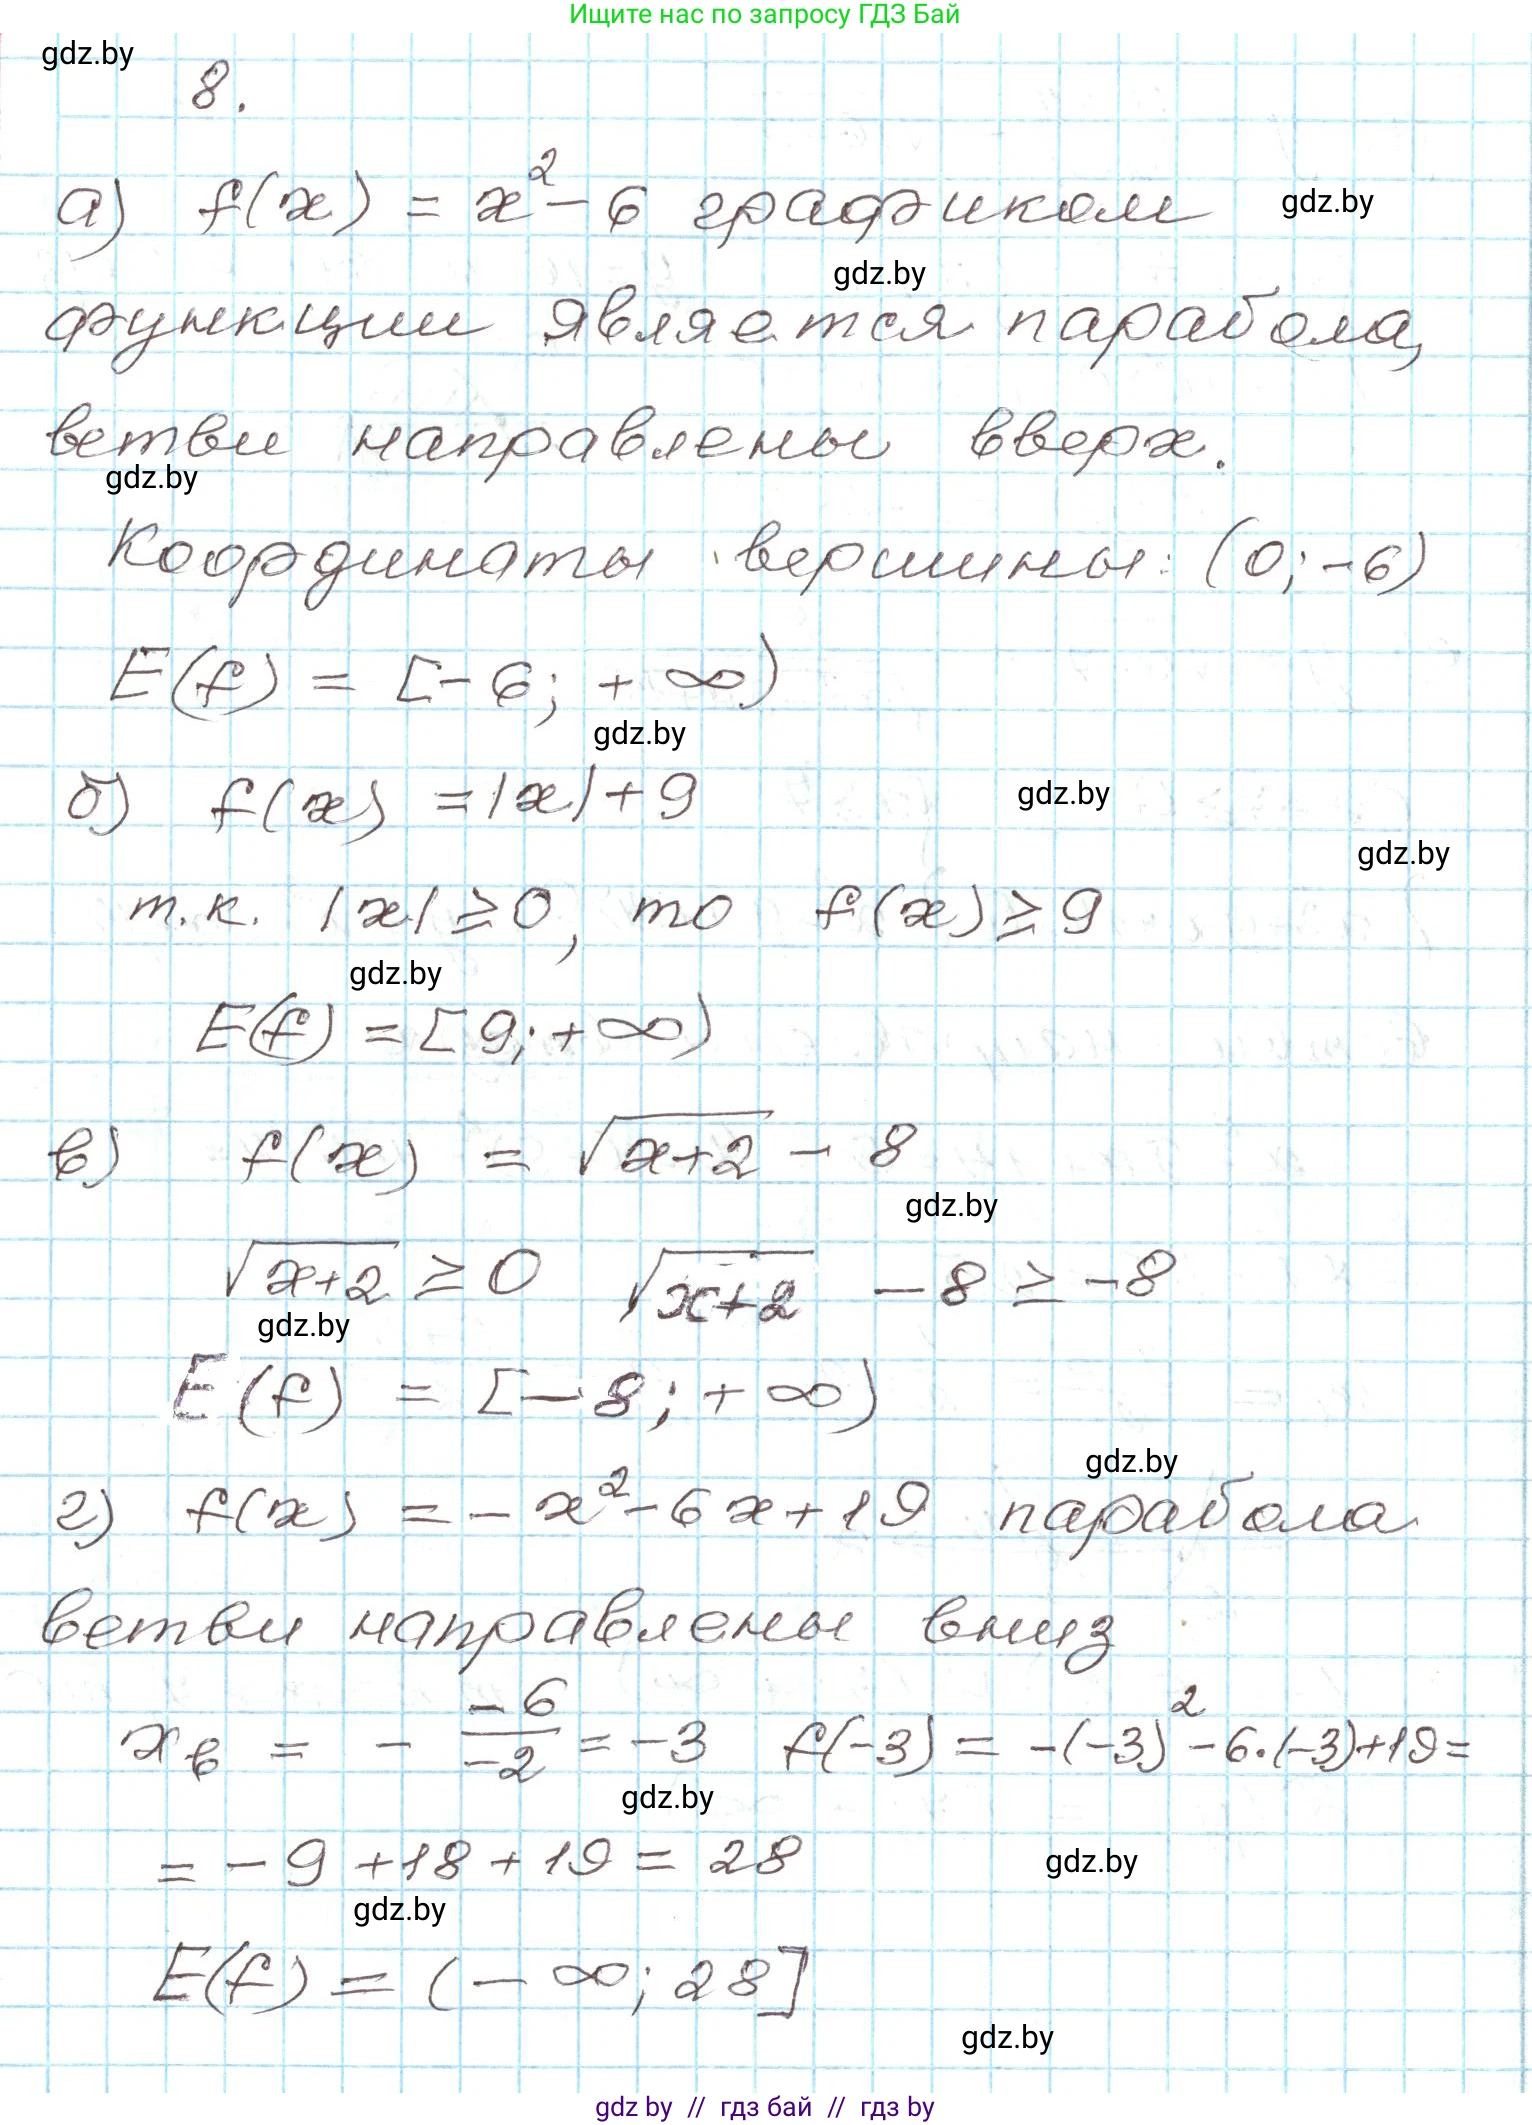 Ищите нас по запросу ГДЗ Бай
gdz.by
8.
а) f(x) = x² - 6 графиком
gdz.by
gdz.by
функции является парабола,
ветви направлены вверх.
gdz.by
Координаты вершины: (0; -6)
E(f) = [-6; +∞)
gdz.by
б) f(x) = |x| + 9
gdz.by
gdz.by
т.к. |x| ≥ 0, то f(x) ≥ 9
gdz.by
E(f) = [9; +∞)
в) f(x) = √(x+2) - 8
gdz.by
√(x+2) ≥ 0 √(x+2) - 8 ≥ -8
gdz.by
E(f) = [-8; +∞)
gdz.by
г) f(x) = -x² - 6x + 19 парабола
ветви направлены вниз
xв = - -6/-2 = -3 f(-3) = -(-3)² - 6·(-3) + 19 =
gdz.by
= -9 + 18 + 19 = 28
gdz.by
gdz.by
E(f) = (-∞; 28]
gdz.by
gdz by // гдз бай // гдз by